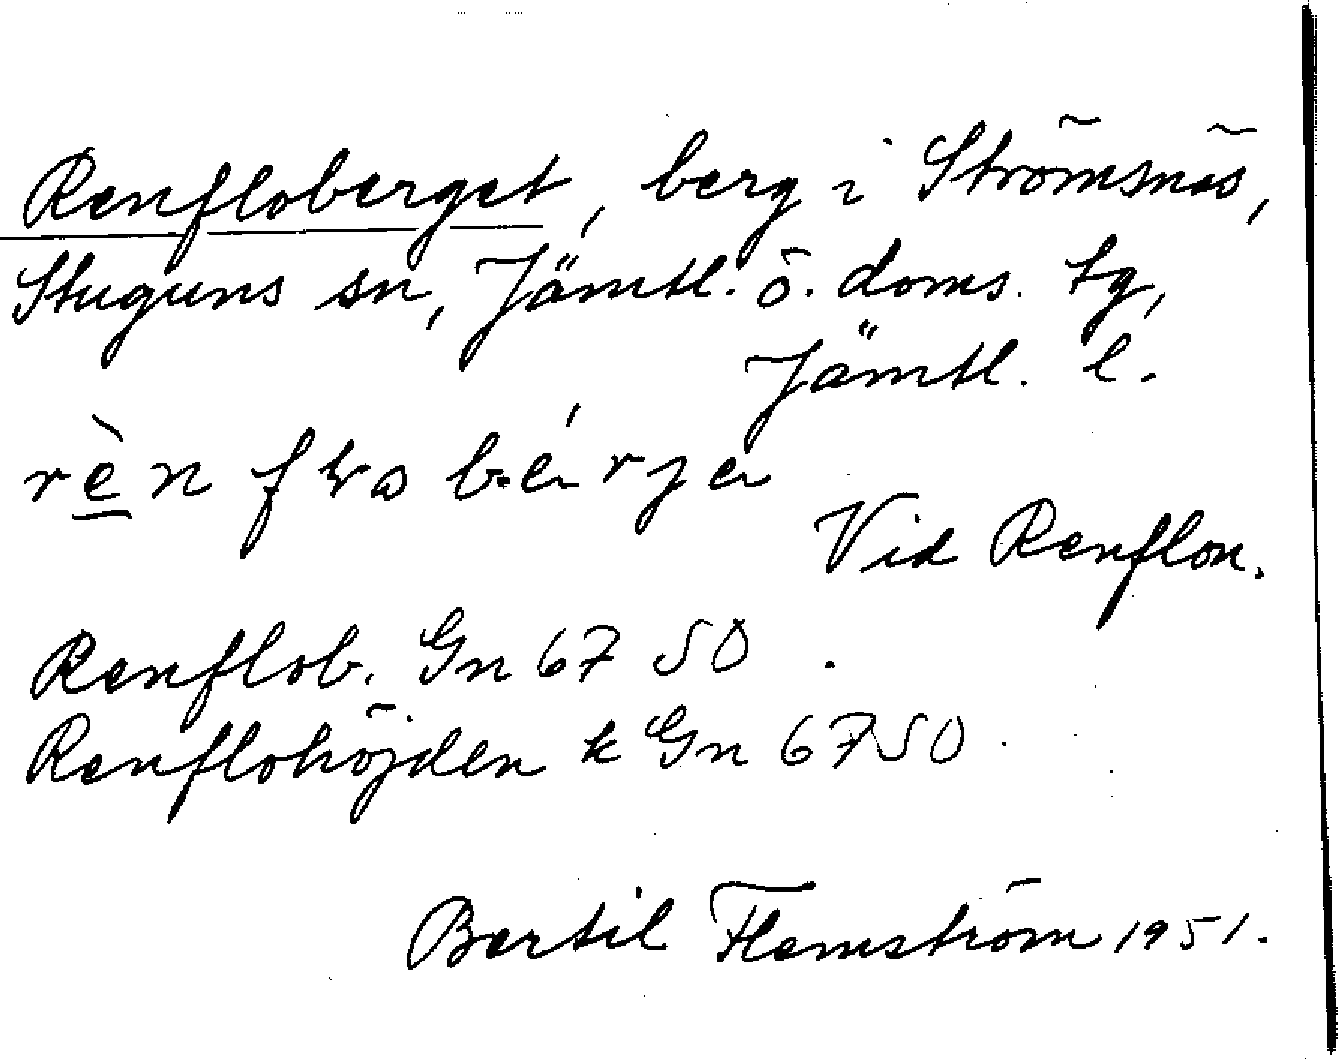 Renfloberget, berg i Strömsnäs,
Stuguns sn, Jämtl. ö. doms. tg,
Jämtl. l.
Vid Renflon.
Renflob. Gn 67 50
Renflohöjden k Gn 6750
Bertil Flemström 1951.